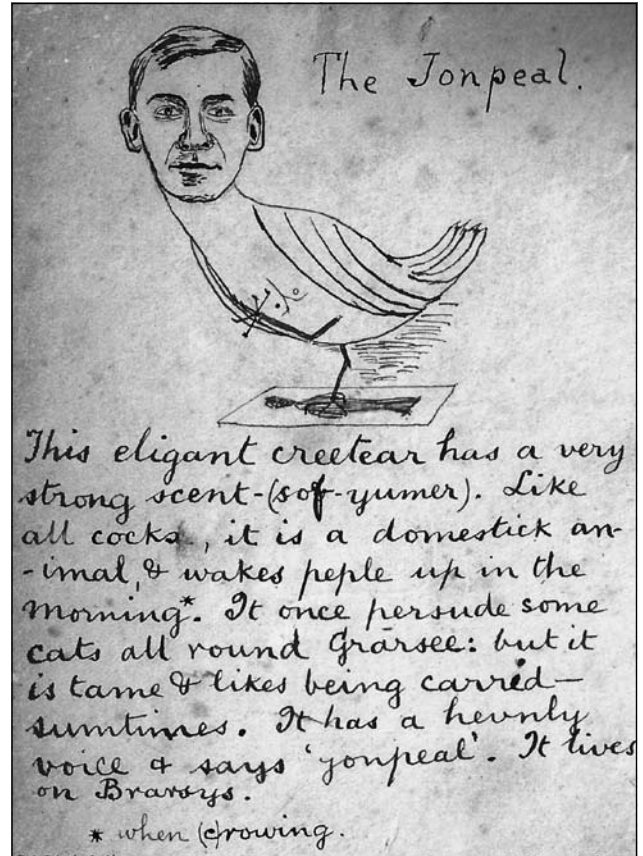 The Jonpeal.
This eligant creetear has a very
strong scent-(sof-yumer). Like
all cocks, it is a domestick an-
-imal, & wakes peple up in the
morning*. It once persude some
cats all round Grārsee: but it
is tame & likes being carrid—
sumtimes. It has a hevnly
voice & says 'yonpeal'. It lives
on Brarsys.
* when (c)rowing.